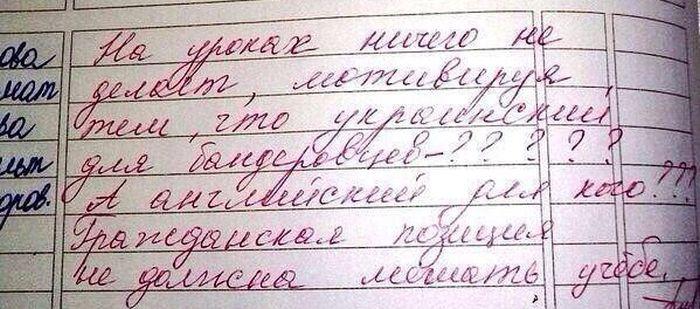 ова На уроках ничего не
мат делает, мотивируя
ва тем, что украинский
для бандеровцев-?? ? ? ?
ров. А английский для кого???
Гражданская позиция
не должна мешать учёбе.